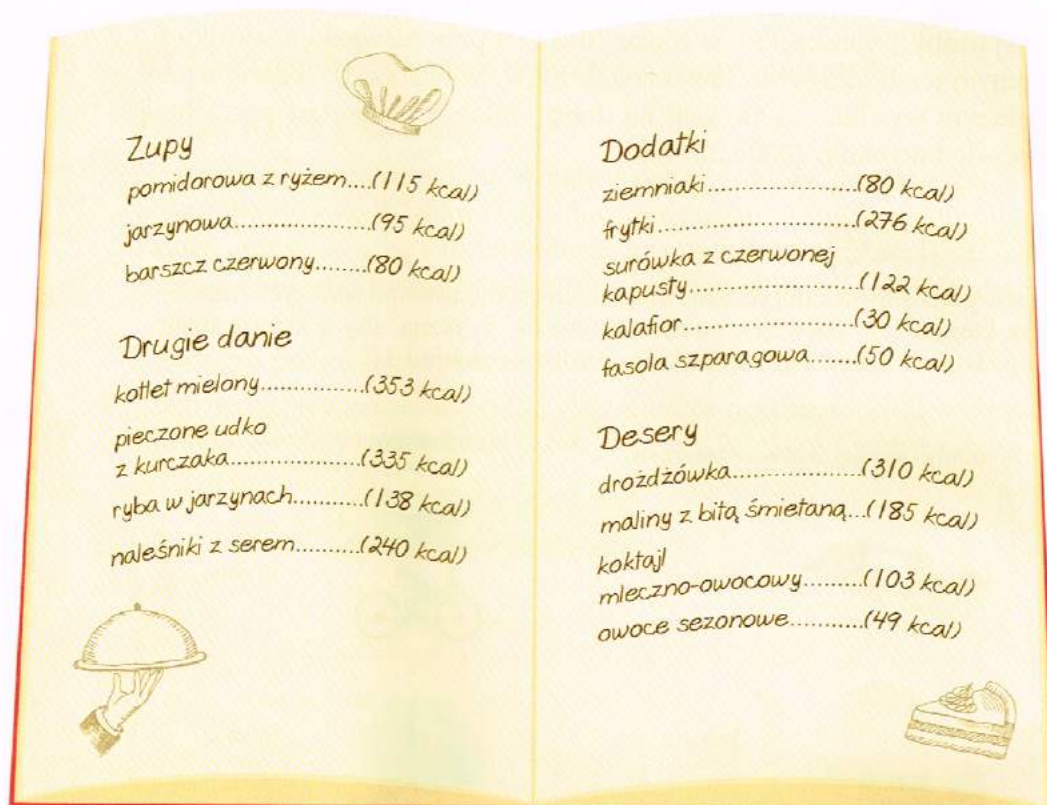 Zupy
pomidorowa z ryżem....(115 kcal)
jarzynowa....................(95 kcal)
barszcz czerwony........(80 kcal)
Drugie danie
kotlet mielony...............(353 kcal)
pieczone udko
z kurczaka...................(335 kcal)
ryba w jarzynach..........(138 kcal)
naleśniki z serem..........(240 kcal)
Dodatki
ziemniaki......................(80 kcal)
frytki............................(276 kcal)
surówka z czerwonej
kapusty.........................(122 kcal)
kalafior.........................(30 kcal)
fasola szparagowa.......(50 kcal)
Desery
drożdżówka.................(310 kcal)
maliny z bitą śmietaną...(185 kcal)
koktajl
mleczno-owocowy........(103 kcal)
owoce sezonowe...........(49 kcal)